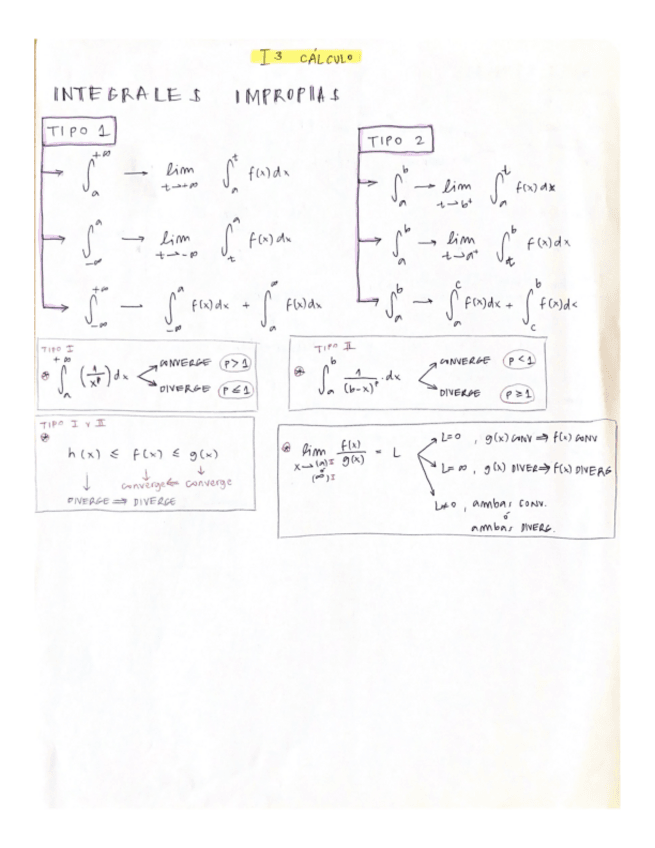 I3 CÁLCULO
INTEGRALES IMPROPIAS
TIPO 1
∫_a^{+∞} → lim_{t→+∞} ∫_a^t f(x)dx
∫_{-∞}^a → lim_{t→-∞} ∫_t^a f(x)dx
∫_{-∞}^{+∞} → ∫_{-∞}^a f(x)dx + ∫_a^∞ f(x)dx
TIPO 2
∫_a^b → lim_{t→b⁺} ∫_a^t f(x)dx
∫_a^b → lim_{t→a⁺} ∫_t^b f(x)dx
∫_a^b → ∫_a^c f(x)dx + ∫_c^b f(x)dx
TIPO I
∫_a^{+∞} (1/x^p) dx
CONVERGE p>1
DIVERGE p≤1
TIPO II
∫_a^b 1/(b-x)^p · dx
CONVERGE p<1
DIVERGE p≥1
TIPO I y II
h(x) ≤ f(x) ≤ g(x)
converge ⇐ converge
DIVERGE ⇒ DIVERGE
lim_{x→(a)II ó (∞)I} f(x)/g(x) = L
L=0, g(x) CONV ⇒ f(x) CONV
L=∞, g(x) DIVER ⇒ f(x) DIVERG
L≠0, ambas CONV.
ó
ambas DIVERG.